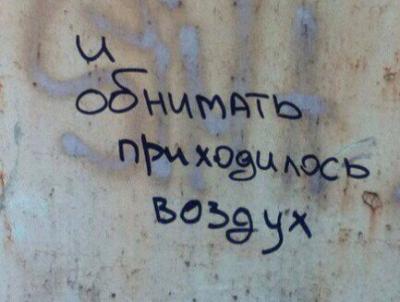 и
обнимать
приходилось
воздух